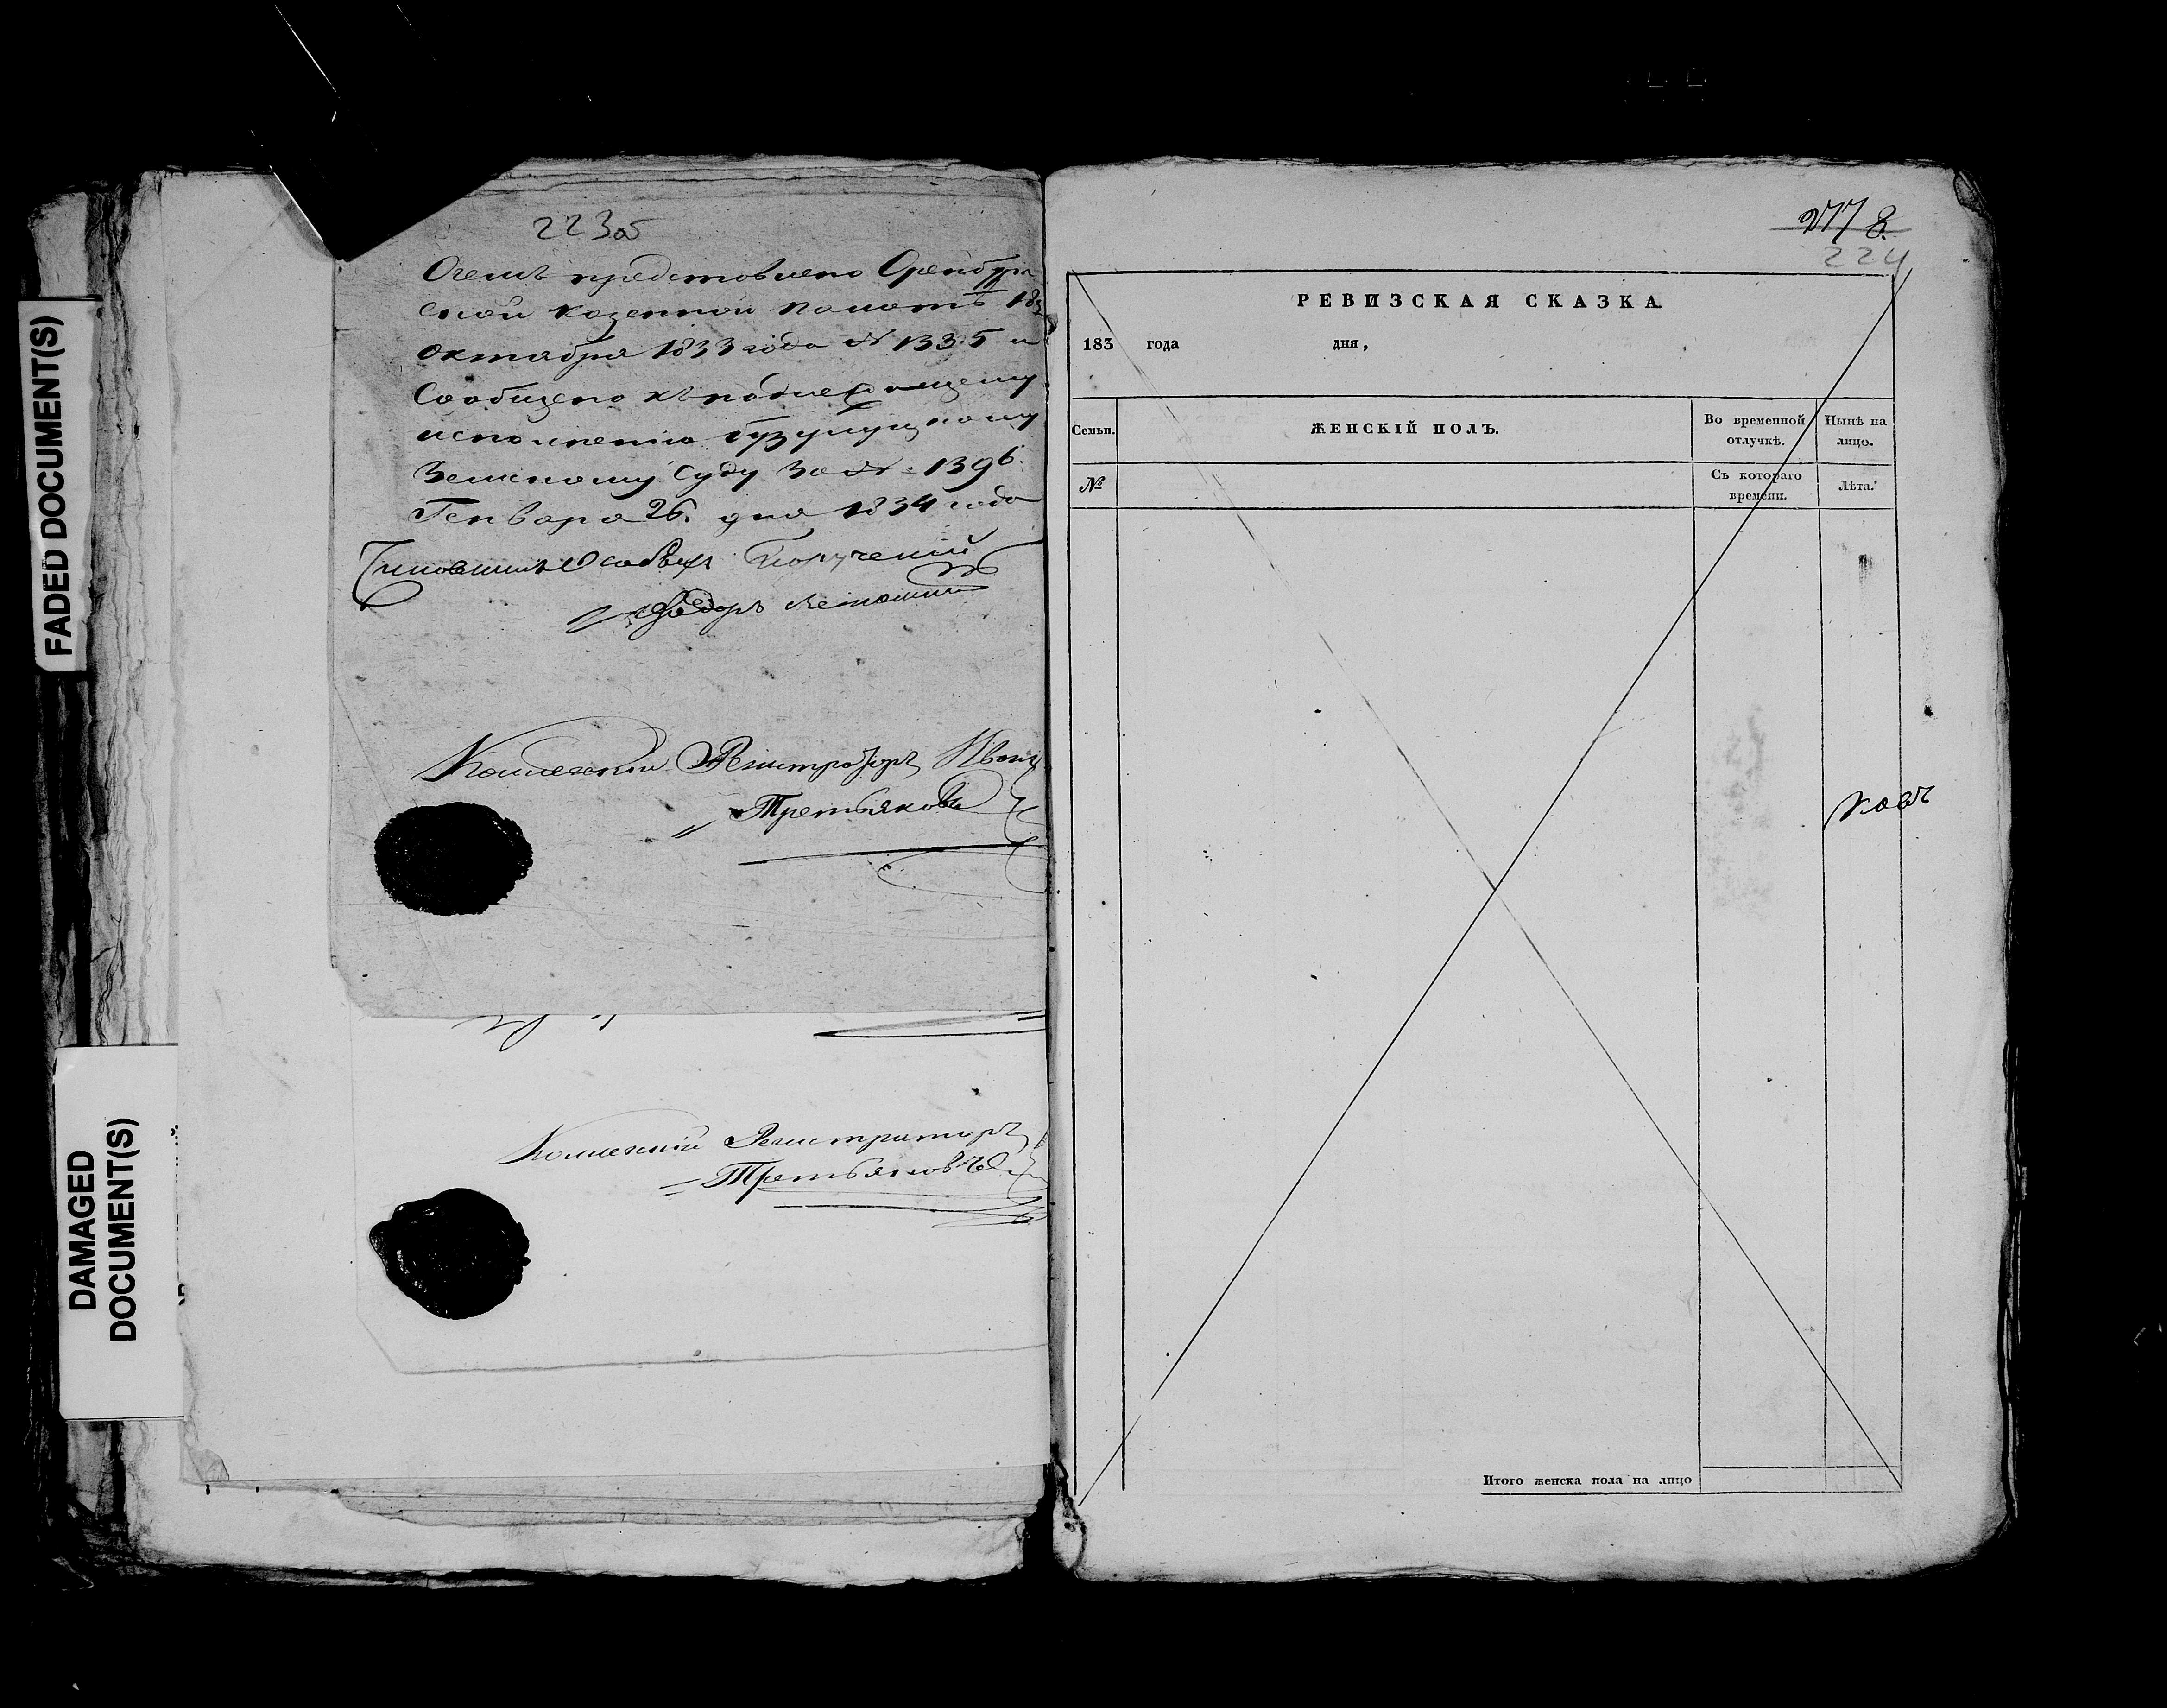 FADED DOCUMENT(S)
DAMAGED
DOCUMENT(S)
223об
О чемъ представлено Оренбург
ской казенной палатѣ 18
октября 1833 года № 1335 и
Сообщено къ подлежащему
исполнению Бузулуцкому
Земскому Суду за № 1396
Генваря 26 дня 1834 года
Чиновникъ Особыхъ Порученiй
Федоръ
Коллежскiй Регистраторъ Иванъ
Третьяковъ
Коллежскiй Регистраторъ
Третьяковъ
277 8.
224
РЕВИЗСКАЯ СКАЗКА
183 года дня,
Семьи.
ЖЕНСКIЙ ПОЛЪ.
Во временной
отлучкѣ.
Нынѣ на
лицо.
№
Съ котораго
времени.
Лѣта.
ковъ
Итого женска пола на лицо